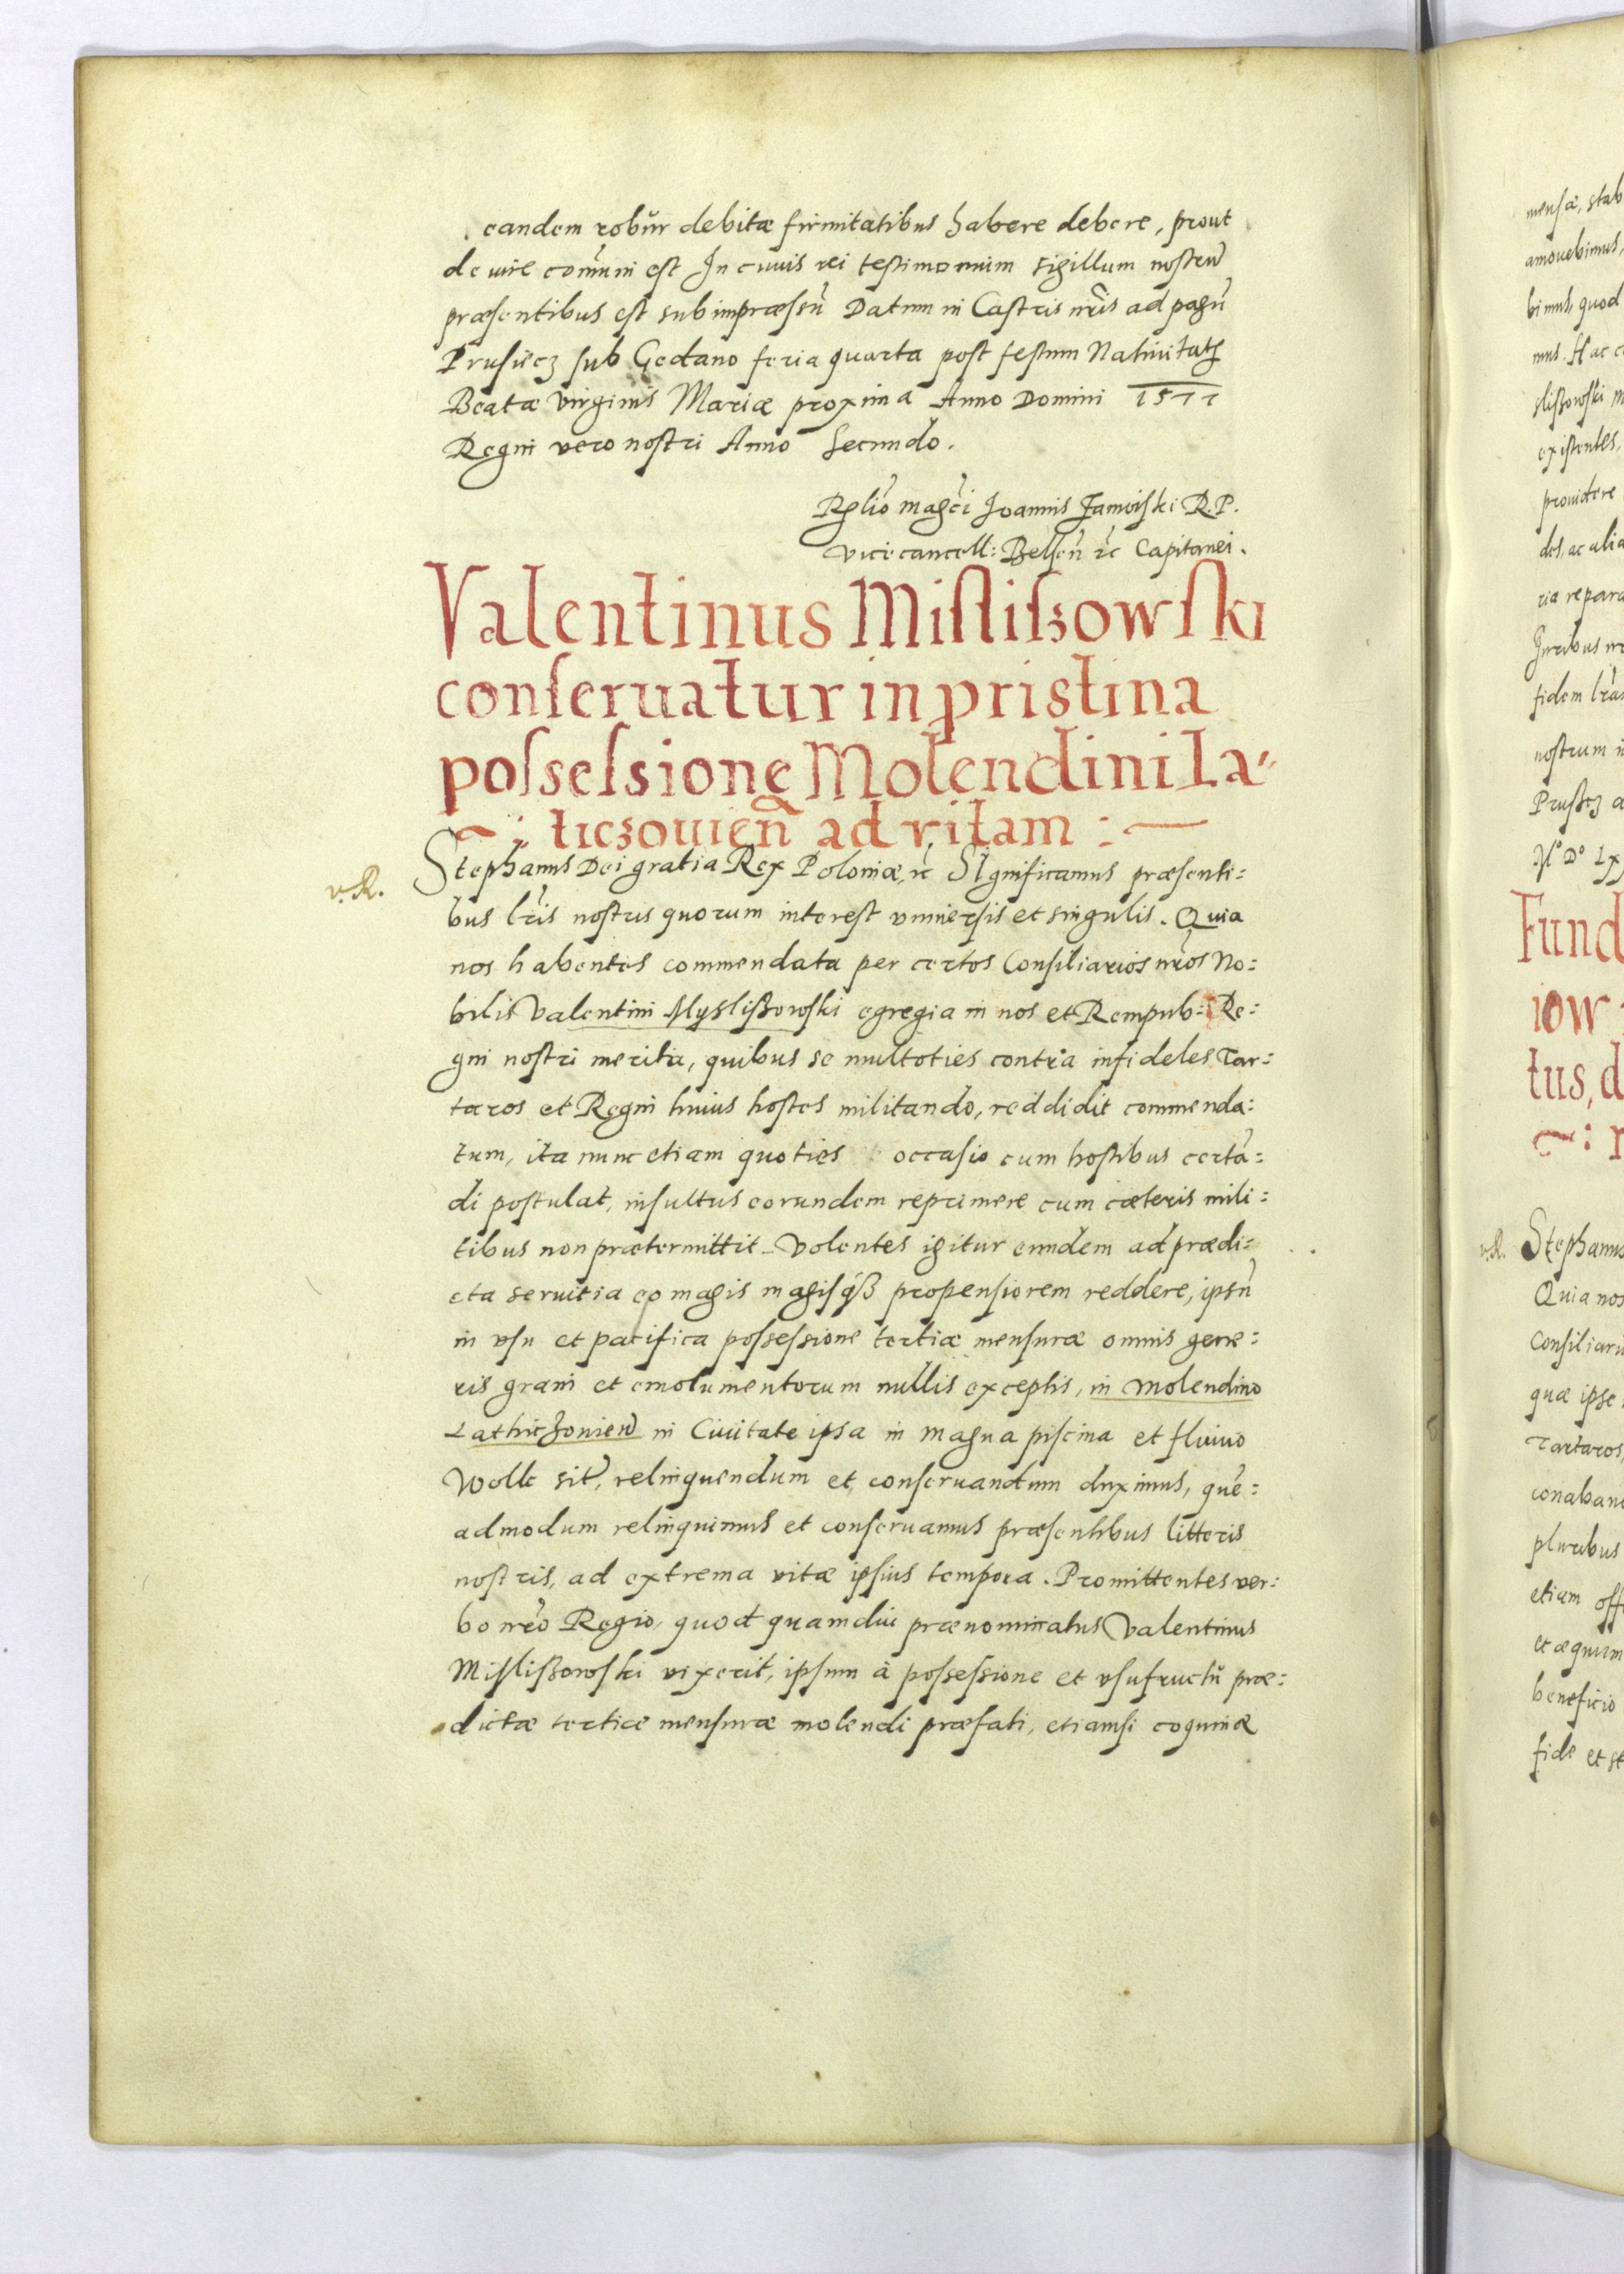 eandem robur debitæ firmitatibus habere debere, prout
de iure comuni est In cuius rei testimonium sigillum nostrũ
præsentibus est subimpræssũ Datum in Castris nr̃is ad pagũ
Prusiecz sub Gedano feria quarta post festum Natiuitatis
Beatæ Virginis Mariæ proxima Anno Domini 1577
Regni vero nostri Anno Secundo.
Rẽlio magci Joannis Zamoiski R. P.
vicecancell: Belseñ ꝛc Capitanei.
Valentinus Mislißowski
conseruatur in pristina
possessione Molendini La-
ticzouieñ ad vitam :
v. R.
Stephanus Dei gratia Rex Poloniæ, ꝛc SIgnificamus præsenti:
bus lr̃is nostris quorum interest vniuersis et singulis. Quia
nos habentes commendata per certos Consiliarios nr̃os No:
bilis Valentini Myslißowski egregia in nos et Rempub: Re:
gni nostri merita, quibus se multoties contra infideles Tar:
taros et Regni huius hostes militando, reddidit commenda:
tum, ita nunc etiam quoties occasio cum hostibus certã:
di postulat, insultus eorundem reprimere cum cæteris mili:
tibus non prætermittit. Volentes igitur eundem ad prædi:
cta seruitia eo magis magisqß propensiorem reddere, ipsũ
in vsu et pacifica possessione tertiæ mensuræ omnis gene:
ris grani et emolumentorum nullis exceptis, in molendino
Lathiczouieñ in Ciuitate ipsa in magna piscina et fluuio
Wolk sit̃, relinquendum et conseruandum duximus, quẽ:
admodum relinquimus et conseruamus præsentibus litteris
nostris, ad extrema vitæ ipsius tempora. Promittentes ver:
bo nr̃o Regio, quod quamdiu prænominatus Valentinus
Mislißowski vixerit, ipsum à possessione et vsufructũ præ:
dictæ tertiæ mensuræ molendi præfati, etiamsi coquinæ
mensæ, stab
amouebimus,
bimus, quod
slißowski m
existentes,
prouidere
des, ac alia
ria repara
Juribus nr
fidem lr̃as
nostrum i
Prussez a
Fund
iow
tus, d
v. R.
Stephanus
Quia nos
Consiliaru
quæ ipse
Tartaros,
conaban
pluribus
etiam off
et æquum
beneficio
fide et st